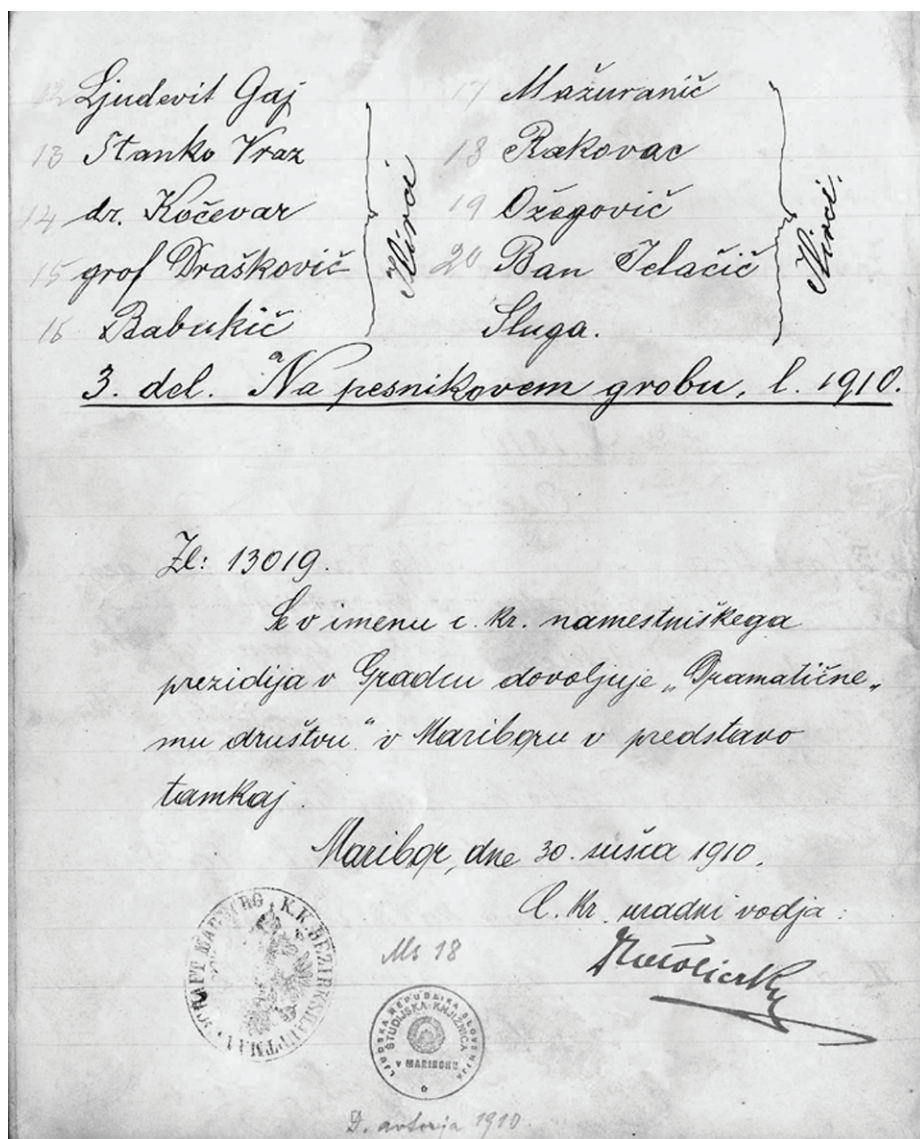 12 Ljudevit Gaj
13 Stanko Vraz
14 dr. Kočevar
15 grof Draškovič
16 Babukič
Ilirci
17 Mažuranič
18 Rakovac
19 Ožegovič
20 Ban Jelačič
Sluga.
Ilirci.
3. del. Na pesnikovem grobu, l. 1910.
Zl: 13019.
Se v imenu c. kr. namestniškega
prezidija v Gradcu dovoljuje „Dramatične„
mu društvu“ v Mariboru v predstavo
tamkaj.
Maribor, dne 30. sušca 1910.
C. kr. uradni vodja:
K.K. BEZIRKSHAUPTMANNSCHAFT MARBURG
Ms 18
LJUDSKA REPUBLIKA SLOVENIJA
ŠTUDIJSKA KNJIŽNICA
V MARIBORU
D. avtorja 1910.